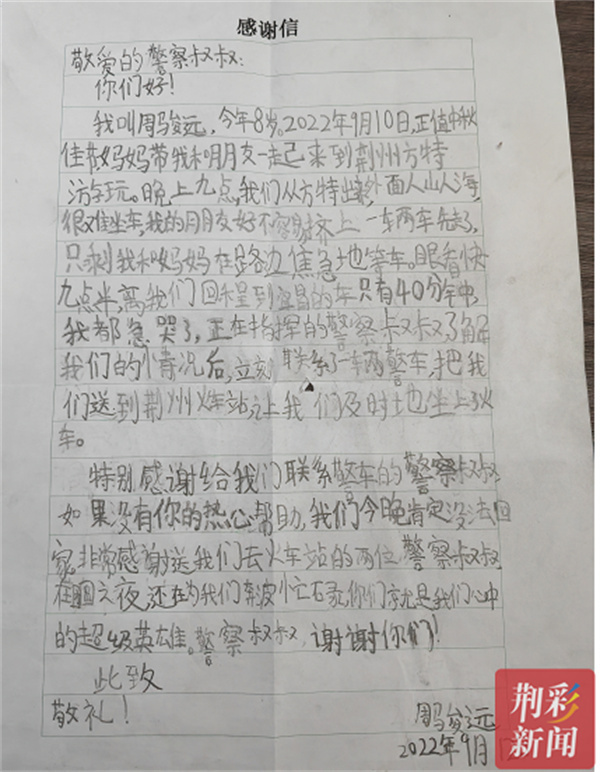 感谢信
敬爱的警察叔叔:
你们好!
我叫周骏远,今年8岁。2022年9月10日,正值中秋
佳节,妈妈带我和朋友一起来到荆州方特
游玩。晚上九点,我们从方特出来,外面人山人海,
很难坐车,我的朋友好不容易挤上一车两车先走了,
只剩我和妈妈在路边焦急地等车。眼看快
九点半,离我们回程到宜昌的车只有40分钟,
我都急哭了,正在指挥的警察叔叔,了解
我们的情况后,立刻联系了一车两警车,把我
们送到荆州火车站,让我们及时地坐上了火
车。
特别感谢给我们联系警车的警察叔叔
如果没有你的热心帮助,我们今晚肯定没法回
家,非常感谢送我们去火车站的两位警察叔叔
在团圆之夜,还在为我们奔波忙碌,你们就是我们心中
的超级英雄。警察叔叔,谢谢你们!
此致
敬礼!
周骏远
2022年9月
荆彩
新闻